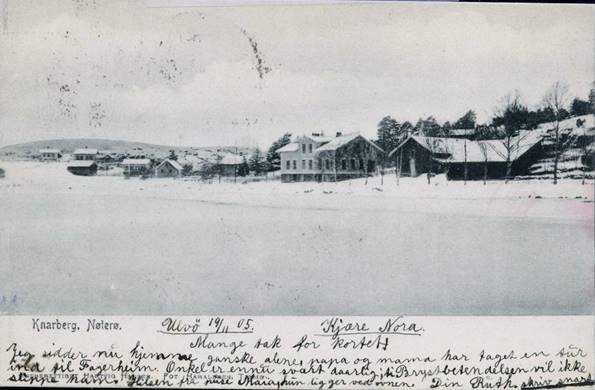 Knarberg, Nøterø.
Ulvö 19/11 05. Kjære Nora.
Mange tak for kortet
Jeg sidder nu hjemme ganske alene, papa og mama har taget en tur
ind til Fagerheim. Onkel er ennu svært daarlig, Brystbetendelsen vil ikke
slippe ham. Hilsen fra ligger ved ovnen. Din Ruth, skriv snart